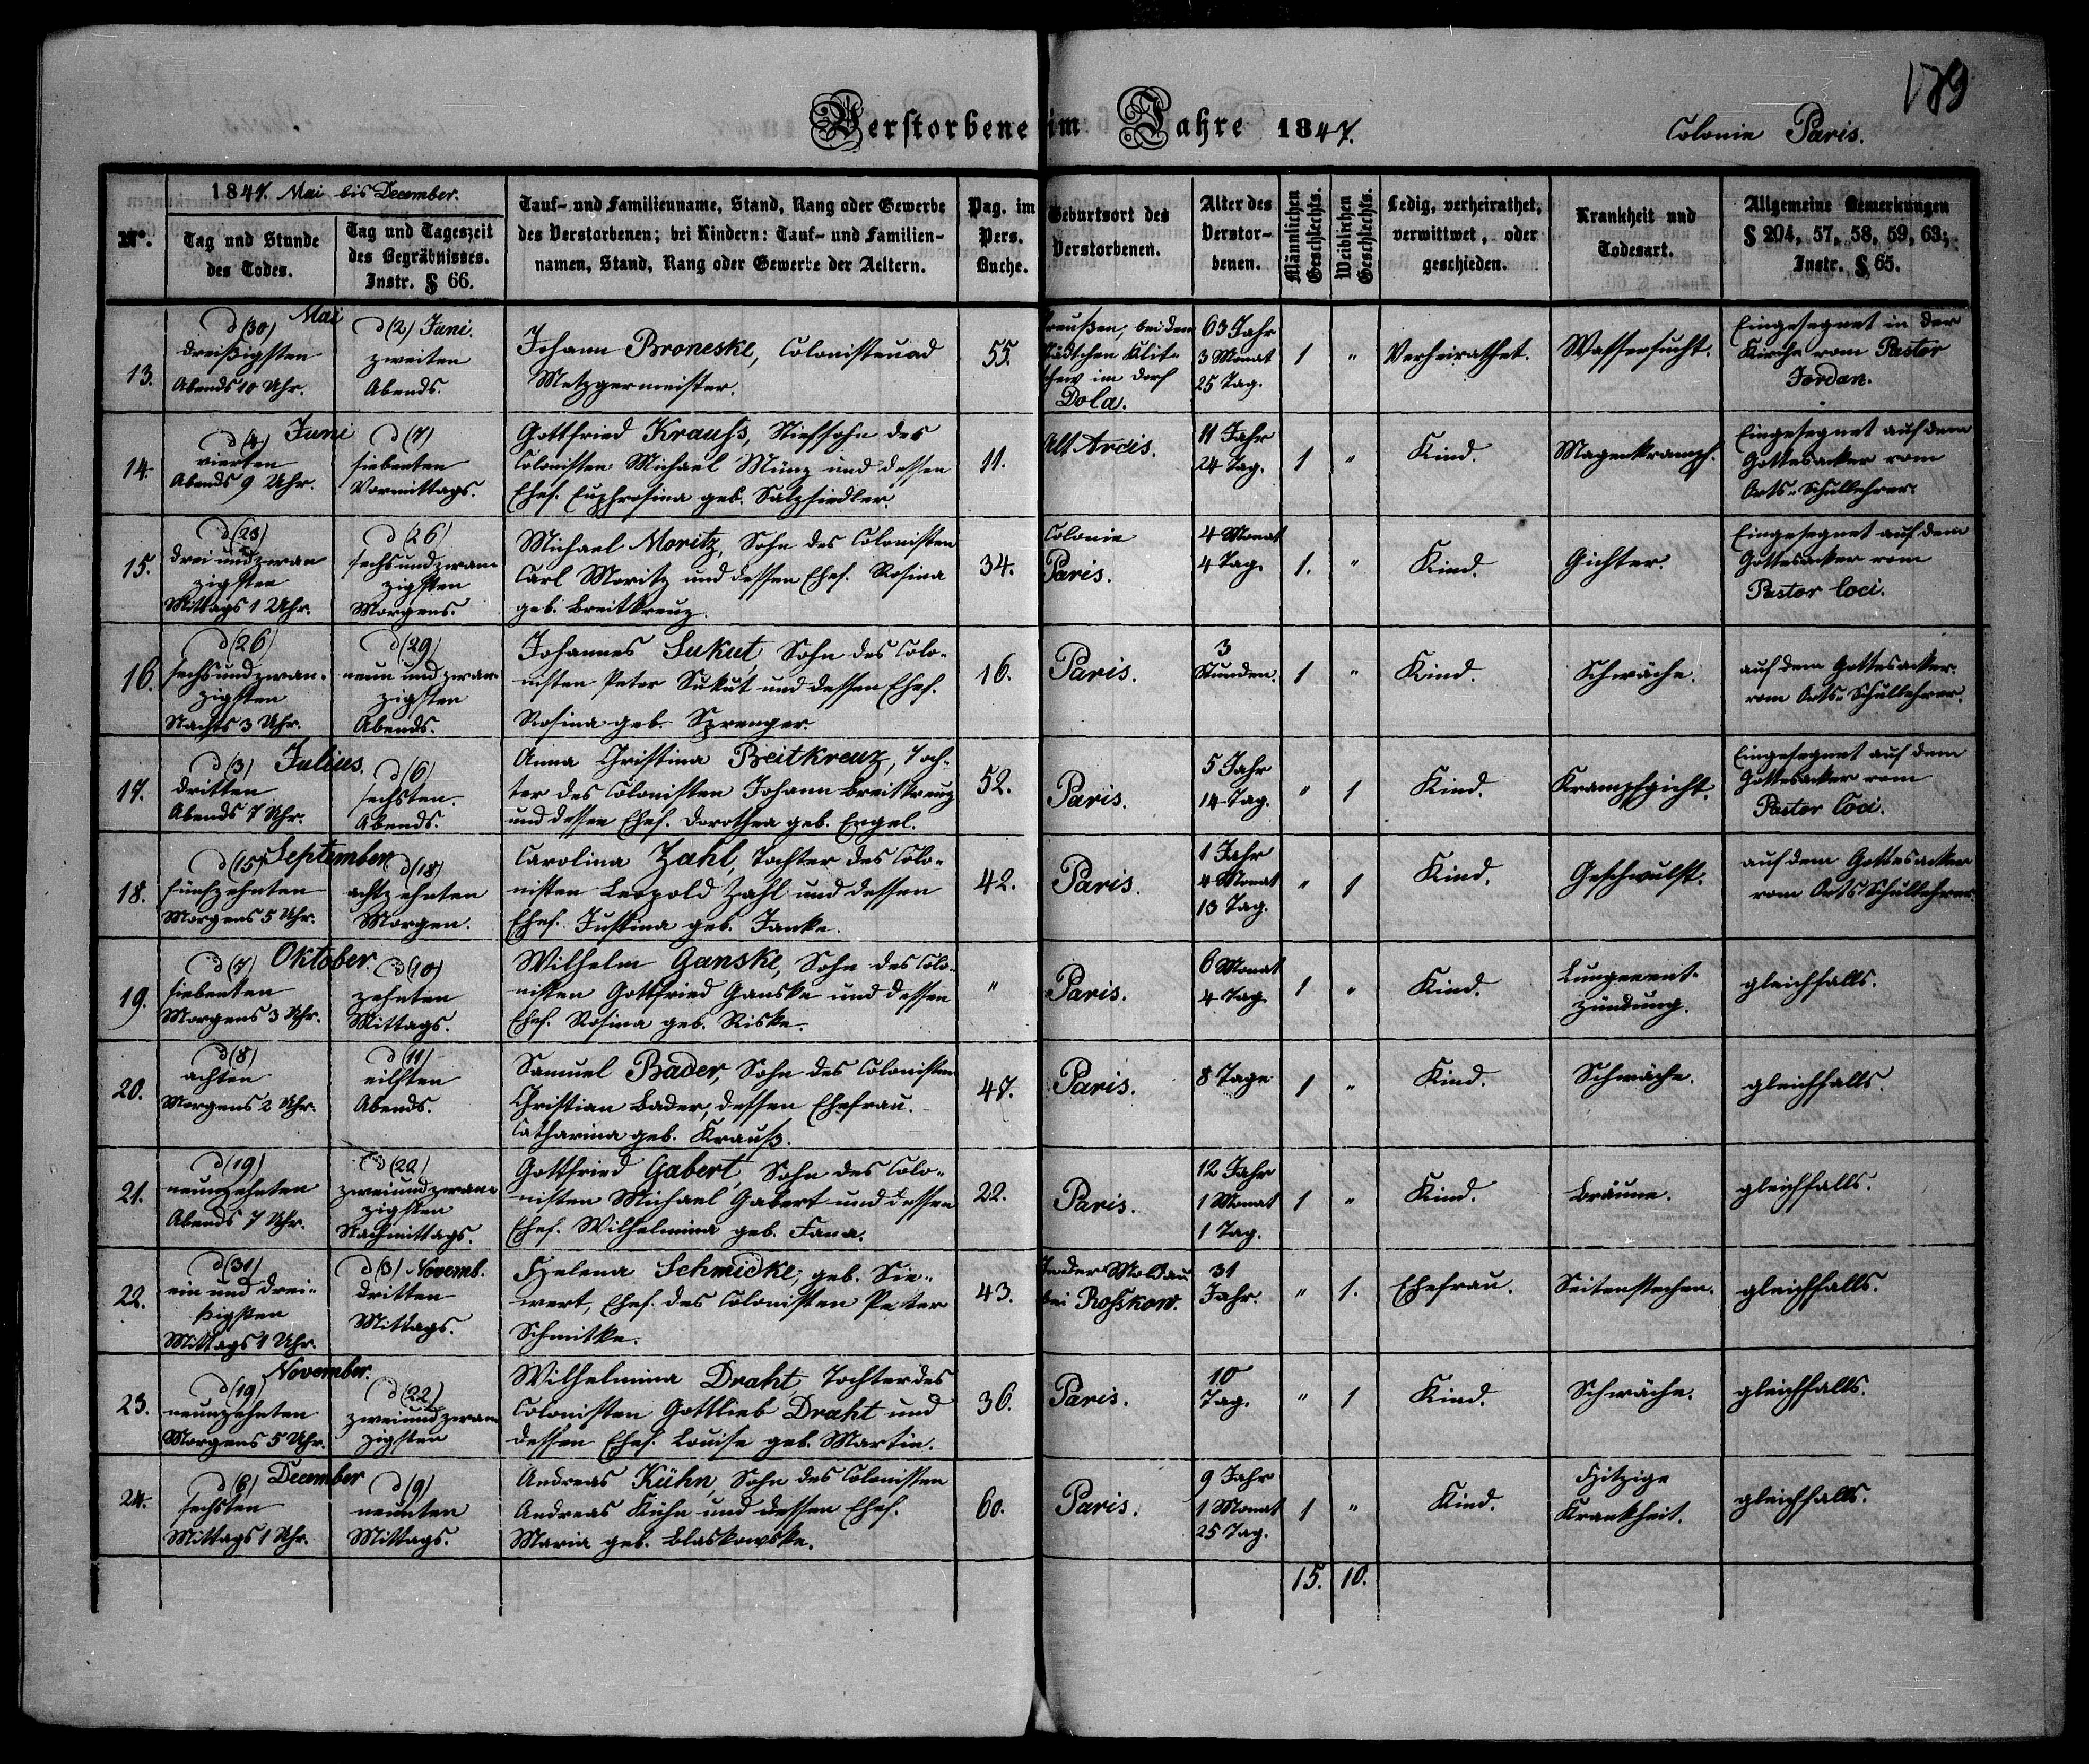 189
Verstorbene im Jahre 1847.
Colonie Paris.
No.
1847. Mai bis December.
Tag und Stunde
des Todes.
Tag und Tageszeit
des Begräbnisses.
Instr. § 66.
Tauf- und Familienname, Stand, Rang oder Gewerbe
des Verstorbenen; bei Kindern: Tauf- und Familien-
namen, Stand, Rang oder Gewerbe der Aeltern.
Pag. im
Pers.
Buche.
Geburtsort des
Verstorbenen.
Alter des
Verstor-
benen.
Männlichen
Geschlechts.
Weiblichen
Geschlechts.
Ledig, verheirathet,
verwittwet, oder
geschieden.
Krankheit und
Todesart.
Allgemeine Bemerkungen
§ 204, 57, 58, 59, 63;
Instr. § 65.
13.
Mai
d (30)
dreißigsten
Abends 10 Uhr.
d (2) Juni.
zweiten
Abends.
Johann Broneske, Colonist und
Metzgermeister.
55.
Preußen, bei dem
Städtchen
im Dorf
Dola.
63 Jahr
3 Monat
25 Tag.
1
"
Verheirathet.
Wassersucht.
Eingesegnet in der
Kirche vom Pastor
Jordan.
14.
Juni
d (4)
vierten
Abends 9 Uhr.
d (7)
siebenten
Vormittags.
Gottfried Krauss, Stiefsohn des
Colonisten Michael Münz und dessen
Ehef. Euphrosina geb. Salzsiedler.
11.
Alt Arcis.
11 Jahr
24 Tag.
1
"
Kind.
Magenkrampf.
Eingesegnet auf dem
Gottesacker vom
Orts-Schullehrer.
15.
d (23)
drei und zwan
zigsten
Mittags 1 Uhr.
d (26)
sechsundzwan-
zigsten
Morgens.
Michael Moritz, Sohn des Colonisten
Carl Moritz und dessen Ehef. Rosina
geb. Breitkreuz.
34.
Colonie
Paris.
4 Monat
4 Tag.
1.
"
Kind.
Gichter.
Eingesegnet auf dem
Gottesacker vom
Pastor loci.
16.
d (26)
sechsundzwan-
zigsten
Nachts 3 Uhr.
d (29)
neun und zwan-
zigsten
Abends.
Johannes Sukut, Sohn des Colo-
nisten Peter Sukut und dessen Ehef.
Rosina geb. Sprenger.
16.
Paris.
3
Stunden.
1
"
Kind.
Schwäche.
auf dem Gottesacker.
vom Orts-Schullehrer.
17.
Julius.
d (3)
dritten
Abends 7 Uhr.
d (6)
sechsten.
Abends.
Anna Christina Breitkreuz, Toch-
ter des Colonisten Johann Breitkreuz
und dessen Ehef. Dorothea geb. Engel.
52.
Paris.
5 Jahr
14 Tag.
"
1
Kind.
Krampfgicht.
Eingesegnet auf dem
Gottesacker vom
Pastor loci.
18.
September
d (15)
fünfzehnten
Morgens 5 Uhr.
d (18)
achtzehnten
Morgen.
Carolina Zahl, Tochter des Colo-
nisten Leopold Zahl und dessen
Ehef. Justina geb. Janke.
42.
Paris.
1 Jahr
4 Monat
13 Tag.
"
1
Kind.
Geschwulst.
auf dem Gottesacker
vom Orts Schullehrer
19.
Oktober.
d (7)
siebenten
Morgens 3 Uhr.
d (10)
zehnten
Mittags.
Wilhelm Ganske, Sohn des Colo-
nisten Gottfried Ganske und dessen
Ehef. Rosina geb. Riske.
"
Paris.
6 Monat
4 Tag.
1
"
Kind.
Lungenent-
zündung.
gleichfalls.
20.
d (8)
achten
Morgens 2 Uhr.
d (11)
eilften
Abends.
Samuel Bader, Sohn des Colonisten
Christian Bader, dessen Ehefrau.
Catharina geb. Krauß.
47.
Paris.
8 Tage
1
"
Kind.
Schwäche.
gleichfalls.
21.
d (19)
neunzehnten
Abends 7 Uhr.
d (22)
zweiundzwan-
zigsten
Nachmittags.
Gottfried Gabert, Sohn des Colo-
nisten Michael Gabert und dessen
Ehef. Wilhelmina geb. Fana.
22.
Paris.
12 Jahr
1 Monat
1 Tag.
1
"
Kind.
Bräune.
gleichfalls.
22.
d (31)
ein und drei-
ßigsten
Mittags 1 Uhr.
d (3) Novemb.
dritten
Mittags.
Helena Schmidke, geb. Sie-
wert, Ehef. des Colonisten Peter
Schmitke.
43.
In der Moldau
bei Rosskow.
31
Jahr.
"
1.
Ehefrau.
Seitenstechen.
gleichfalls.
23.
November.
d (19)
neunzehnten
Morgens 5 Uhr.
d (22)
zweiundzwan
zigsten
Wilhelmina Draht, Tochter des
Colonisten Gottlieb Draht und
dessen Ehef. Louise geb. Martin.
36.
Paris.
10
Tag.
"
1
Kind.
Schwäche.
gleichfalls.
24.
December
d (6)
sechsten
Mittags 1 Uhr.
d (9)
neunten
Mittags.
Andreas Kühn, Sohn des Colonisten
Andreas Kühn und dessen Ehef.
Maria geb. Blaskowske.
60.
Paris.
9 Jahr
1 Monat
25 Tag.
1
"
Kind.
Hitzige
Krankheit.
gleichfalls.
15.
10.